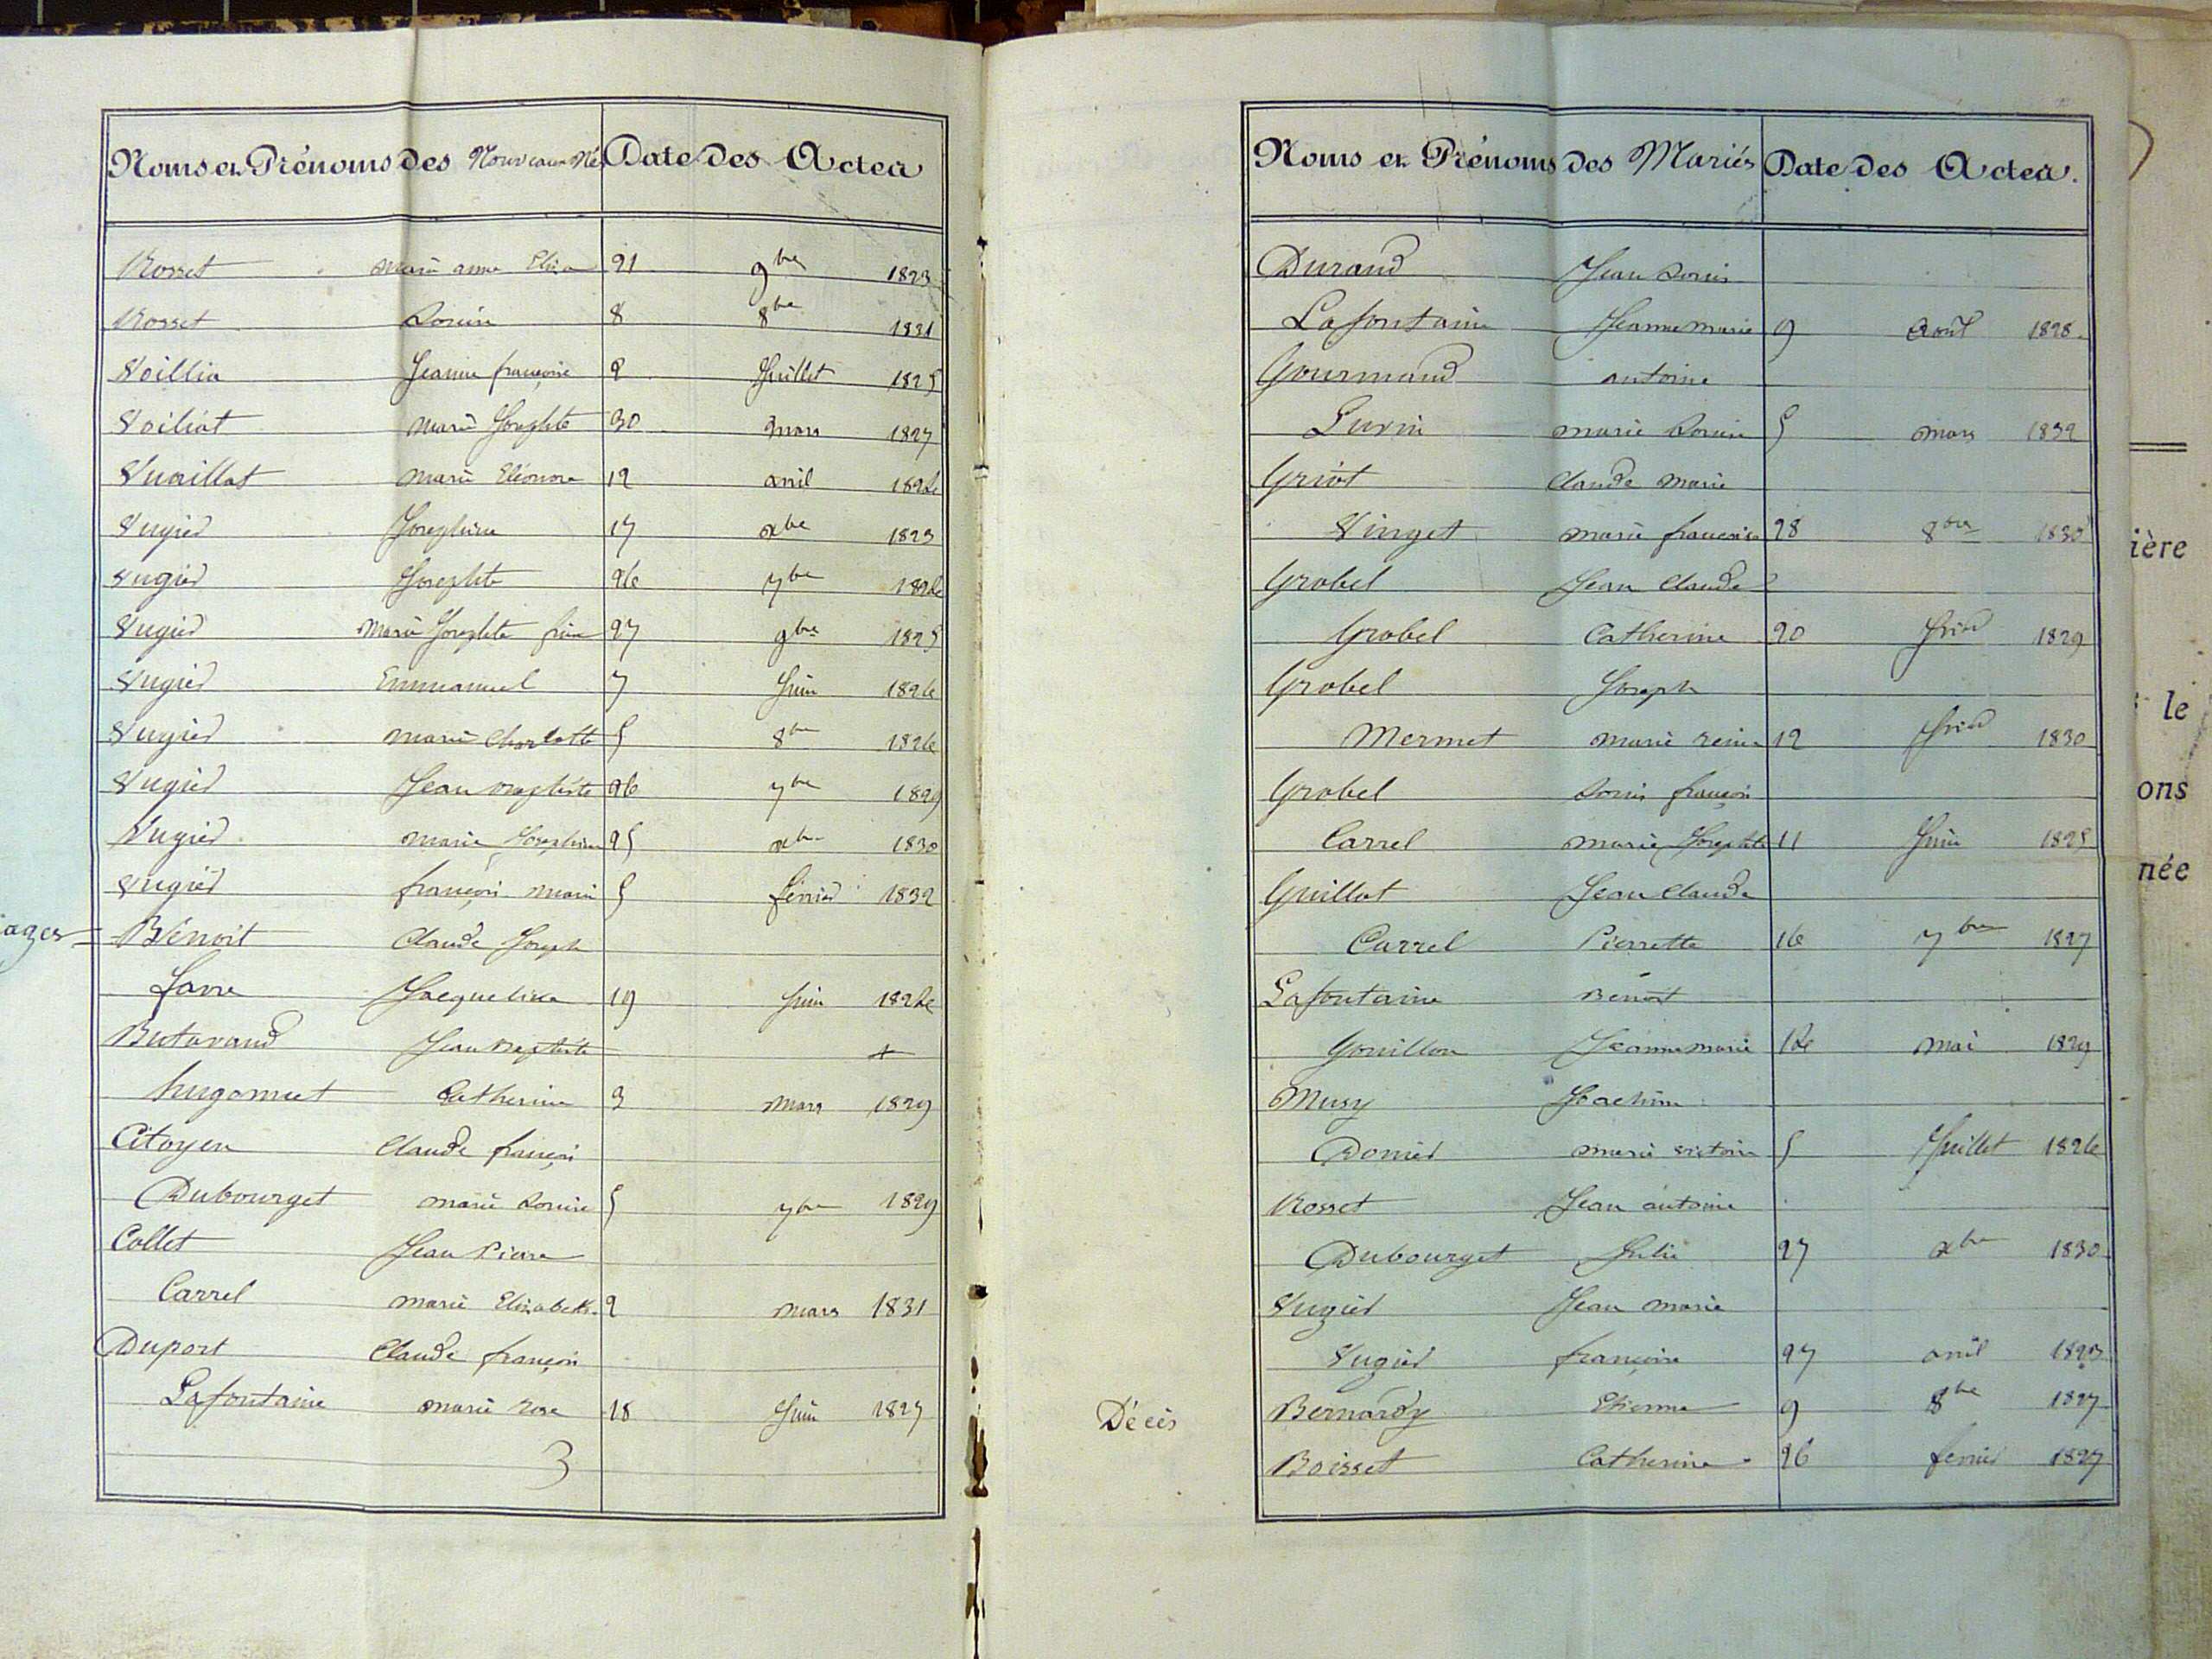 Noms et Prénoms des Nouveaux Nés Date des Actes
Rosset marie anne 21 9bre 1823
Rosset Louise 8 8bre 1831
Voillia Jeanne françoise 2 Juillet 1825
Voiliat marie Josephte 30 mars 1827
Vuaillat marie Eléonore 12 avril 1824
Vugied Josephine 17 xbre 1823
Vugied Josephte 26 7bre 1824
Vugied marie Josephte fine 27 9bre 1825
Vugied Emmanuel 7 Juin 1826
Vugied marie Charlotte 5 8bre 1826
Vugied Jean Baptiste 26 7bre 1829
Vugied marie Josephine 25 xbre 1830
Vugied françois marie 5 février 1832
ages = Bénoit Claude Joseph
favre Jacqueline 19 Juin 1824
Butavand Jean Baptiste +
hugonnet Catherine 3 mars 1829
Citoyen Claude françois
Dubourget marie Louise 5 7bre 1829
Collet Jean Pierre
Carrel marie Elisabeth 2 mars 1831
Duport Claude françois
Lafontaine marie rose 18 Juin 1827
3
Noms et Prénoms des Mariés Date des Actes.
Durand Jean Louis
Lafontaine Jeanne marie 9 Août 1828
Gourmand antoine
Luvin marie Louise 5 mars 1832
Griot Claude marie
Vinget marie françoise 28 8bre 1830
Grobel Jean Claude
Grobel Catherine 20 fried 1829
Grobel Joseph
Mermet marie reine 12 fried 1830
Grobel Louis françois
Carrel marie Josephte 11 Juin 1825
Guillot Jean Claude
Carrel Pierrette 16 7bre 1827
Lafontaine Benoit
Gouillon Jeanne marie 14 mai 1829
Musy Joachim
Domied marie victoire 5 Juillet 1826
Rosset Jean antoine
Dubourget Julie 27 xbre 1830
Vugied Jean marie
Vugied françoise 27 avril 1823
Décès Bernardy Etienne 9 8bre 1827
Boisset Catherine 26 fevrier 1827
ière
le
ons
née